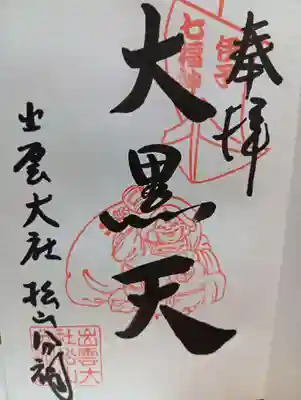 奉拝
伊予
七福神
大黒天
出雲大社松山分祠
出雲大
社松山